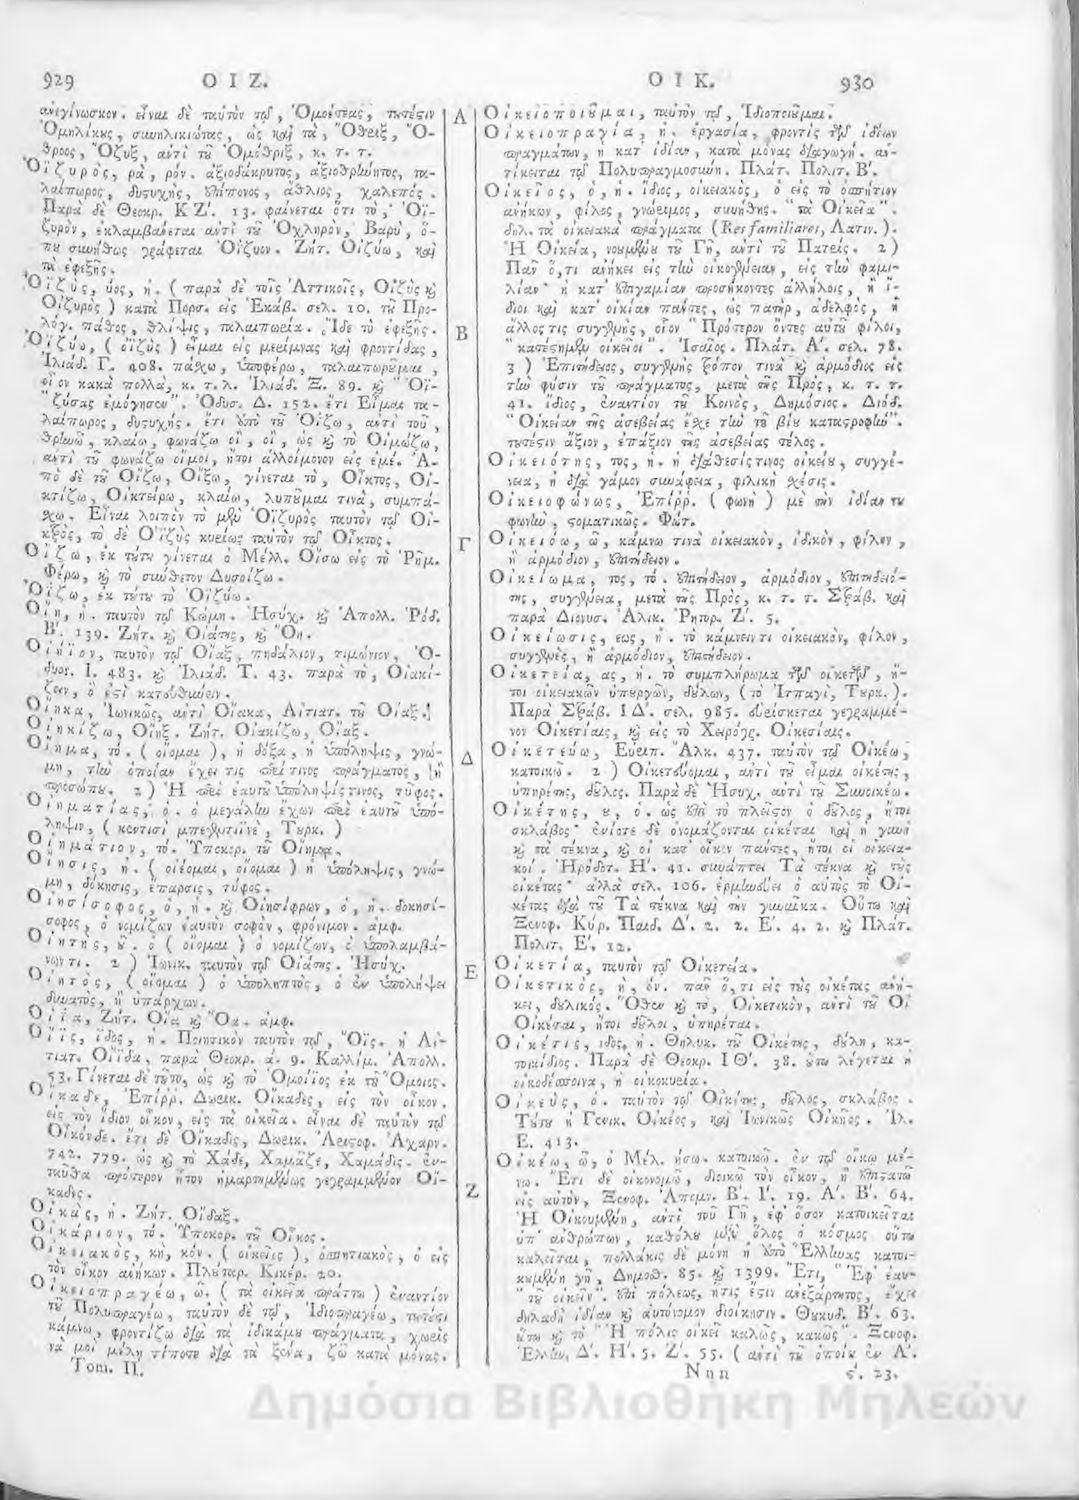 929 Ο Ι Ζ.
ἀνεγίνωσκον. εἶναι δὲ ταὐτὸν τῷ, Ὁμοέστιας, τουτέστιν
Ὁμηλίκης, συνηλικιώτας, ὡς καὶ τὰ, Ὄθριξ, Ὄ-
θροος, Ὄζυξ, αὐτὶ τοῦ Ὁμόθριξ, κ. τ. τ.
Ὀϊζυρὸς, ρὰ, ρόν. ἀξιοδάκρυτος, ἀξιοθρήνητος, τα-
λαίπωρος, δυστυχὴς, ἐπίπονος, ἄθλιος, χαλεπός.
Παρὰ δὲ Θεοκρ. ΚΖ΄. 13. φαίνεται ὅτι τὸ, Ὀϊ-
ζυρὸν, ἐκλαμβάνεται αὐτὶ τοῦ Ὀχληρὸν, Βαρὺ, ὅ-
που συνήθως γράφεται Ὀΐζυον. Ζήτ. Ὀϊζύω, καὶ
τὰ ἐφεξῆς.
Ὀϊζὺς, ύος, ἡ. (παρὰ δὲ τοῖς Ἀττικοῖς, Οἰζὺς καὶ
Οἰζυρὸς) κατὰ Πορσ. εἰς Ἑκάβ. σελ. 10. τοῦ Προ-
λόγ. πάθος, θλίψις, ταλαιπωρία. Ἴδε τὸ ἐφεξῆς.
Ὀϊζύω, (ὀϊζὺς) εἶμαι εἰς μερίμνας καὶ φροντίδας,
Ἰλιάδ. Γ. 408. πάσχω, ὑποφέρω, ταλαιπωροῦμαι,
οἷον κακὰ πολλὰ, κ. τ. λ. Ἰλιάδ. Ξ. 89. καὶ "Ὀϊ-
"ζύσας ἐμόγησεν". Ὀδυσ. Δ. 152. ἔτι Εἶμαι τα-
λαίπωρος, δυστυχής. ἔτι ἀπὸ τοῦ Ὀΐζω, αὐτὶ τοῦ,
θρηνῶ, κλαίω, φωνάζω οἲ, οἲ, ὡς καὶ τὸ Οἰμώζω,
αὐτὶ τοῦ φωνάζω οἴμοι, ἤτοι ἀλλοίμονον εἰς ἐμέ. Ἀ-
πὸ δὲ τοῦ Οἴζω, Οἴξω, γίνεται τὸ, Οἶκτος, Οἰ-
κτίζω, Οἰκτείρω, κλαίω, λυποῦμαι τινὰ, συμπά-
σχω. Εἶναι λοιπὸν τὸ μὲν Ὀϊζυρὸς ταυτὸν τῷ Οἰ-
κτρὸς, τὸ δὲ Ὀϊζὺς κυρίως ταυτὸν τῷ Οἶκτος.
Οἴζω, ἐκ τούτου γίνεται ὁ Μέλλ. Οἴσω εἰς τὸ Ῥῆμ.
Φέρω, καὶ τὸ σύνθετον Δυσοίζω.
Ὀΐζω, ἐκ τούτου τὸ Ὀϊζύω.
Οἴη, ἡ. ταυτὸν τῷ Κώμη. Ἡσύχ. καὶ Ἀπολλ. Ῥόδ.
Β΄. 139. Ζήτ. καὶ Οἰάτης, καὶ Ὄη.
Οἰήϊον, ταυτὸν τῷ Οἴαξ, πηδάλιον, τιμώνιον, Ὀ-
δυσσ. Ι. 483. καὶ Ἰλιάδ. Τ. 43. παρὰ τὸ, Οἰακί-
ζειν, ὅ ἐστι κατευθύνειν.
Οἴηκα, Ἰωνικῶς, αὐτὶ Οἴακα, Αἰτιατ. τοῦ Οἴαξ.
Οἰηκίζω, Οἴηξ. Ζήτ. Οἰακίζω, Οἴαξ.
Οἴημα, τό. (οἴομαι), ἡ δόξα, ἡ ὑπόληψις, γνώ-
μη, τὴν ὁποίαν ἔχει τις περί τινος πράγματος, ἢ
προσώπου. 2) Ἡ περὶ ἑαυτοῦ ὑπόληψίς τινος, τύφος.
Οἰηματίας, ὁ. ὁ μεγάλην ἔχων περὶ ἑαυτοῦ ὑπό-
ληψιν,
Οἰημάτιον, τό. Ὑποκορ. τοῦ Οἴημα.
Οἴησις, ἡ. (οἰέομαι, οἴομαι) ἡ ὑπόληψις, γνώ-
μη, δόκησις, ἔπαρσις, τύφος.
Οἰησίσοφος, ὁ, ἡ. καὶ Οἰησίφρων, ὁ, ἡ. δοκησί-
σοφος, ὁ νομίζων ἑαυτὸν σοφὸν, φρόνιμον. ἀμφ.
Οἰητὴς, οῦ. ὁ (οἴομαι) ὁ νομίζων, ὁ ὑπολαμβά-
νων τι. 2) Ἰωνικ. ταυτὸν τῷ Οἰάτης. Ἡσύχ.
Οἰητὸς, (οἴομαι) ὁ ὑποληπτὸς, ὁ ἐν ὑπολήψει
δυνατὸς, ἢ ὑπάρχων.
Οἴϊα, Ζήτ. Οἴα καὶ Ὄα. ἀμφ.
Οἴϊς, ϊδος, ἡ. Ποιητικὸν ταυτὸν τῷ, Ὄϊς. ἡ Αἰ-
τιατ. Οἴϊδα, παρὰ Θεοκρ. ά. 9. Καλλίμ. Ἀπολλ.
53. Γίνεται δὲ τοῦτο, ὡς καὶ τὸ Ὁμοίϊος ἐκ τοῦ Ὅμοιος.
Οἴκαδε, Ἐπίρρ. Δωρικ. Οἴκαδες, εἰς τὸν οἶκον.
εἰς τὸν ἴδιον οἶκον, εἰς τὰ οἰκεῖα. εἶναι δὲ ταὐτὸν τῷ
Οἶκόνδε. ἔτι δὲ Οἴκαδις, Δωρικ. Ἀριστοφ. Ἀχαρν.
742. 779. ὡς καὶ τὸ Χάδε, Χαμᾶζε, Χαμάδις. ἐν-
ταῦθα πρότερον ἦτον ἡμαρτημένως γεγραμμένον Οἴ-
καδες.
Οἰκὰς, ἡ. Ζήτ. Οἴδαξ.
Οἰκάριον, τό. Ὑποκορ. τοῦ Οἶκος.
Οἰκειακὸς, κὴ, κόν. (οἰκεῖος), ὁσπητιακὸς, ὁ εἰς
τὸν οἶκον ἀνήκων. Πλούταρ. Κικέρ. 20.
Οἰκειοπραγέω, ῶ. (τὰ οἰκεῖα πράττω) ἐναντίον
τοῦ Πολυπραγέω, ταυτὸν δὲ τῷ, Ἰδιοπραγέω, τουτέστι
κάμνω, φροντίζω διὰ τὰ ἰδικάμου πράγματα, χωρὶς
νὰ μοὶ μέλῃ τίποτε διὰ τὰ ξένα, ζῶ κατὰ μόνας.
Tom. II.
Α
Β
Γ
Δ
Ε
Ζ
Ο Ι Κ. 930
Οἰκειοποιοῦμαι, ταὐτὸν τῷ, Ἰδιοποιοῦμαι.
Οἰκειοπραγία, ἡ. ἐργασία, φροντὶς τῶν ἰδίων
πραγμάτων, ἡ κατ' ἰδίαν, κατὰ μόνας διαγωγή. αὐ-
τίκειται τῷ Πολυπραγμοσύνη. Πλάτ. Πολιτ. Β΄.
Οἰκεῖος, ὁ, ἡ. ἴδιος, οἰκειακὸς, ὁ εἰς τὸ ὁσπήτιον
ἀνήκων, φίλος, γνώριμος, συνήθης. "τὰ Οἰκεῖα".
δηλ. τὰ οἰκειακὰ πράγματα (Res familiares, Λατιν.).
Ἡ Οἰκεία, νοουμένου τοῦ Γῆ, αὐτὶ τοῦ Πατρίς. 2)
Πᾶν ὅ,τι ἀνήκει εἰς τὴν οἰκογένειαν, εἰς τὴν φαμι-
λίαν· ἢ κατ' ἐπιγαμίαν προσήκοντες ἀλλήλοις, ἢ ἴ-
διοι καὶ κατ' οἰκίαν πάντες, ὡς πατὴρ, ἀδελφὸς, ἢ
ἄλλος τις συγγενὴς, οἷον "Πρότερον ὄντες αὐτοῦ φίλοι,
"κατέστημεν οἰκεῖοι". Ἰσαῖος. Πλάτ. Α΄. σελ. 78.
3) Ἐπιτήδειος, συγγενὴς τρόπον τινὰ καὶ ἁρμόδιος εἰς
τὴν φύσιν τοῦ πράγματος, μετὰ τῆς Πρὸς, κ. τ. τ.
41. ἴδιος, ἐναντίον τοῦ Κοινὸς, Δημόσιος. Διόδ.
"Οἰκείαν τῆς ἀσεβείας ἔσχε τὴν τοῦ βίου καταστροφήν".
τουτέστιν ἄξιον, ἐπάξιον τῆς ἀσεβείας τέλος.
Οἰκειότης, τος, ἡ. ἡ διάθεσίς τινος οἰκείου, συγγέ-
νεια, ἡ διὰ γάμον συνάφεια, φιλικὴ σχέσις.
Οἰκειοφώνως, Ἐπίρρ. (φωνὴ) μὲ τὴν ἰδίαν του
φωνὴν, στοματικῶς. Φώτ.
Οἰκειόω, ῶ, κάμνω τινὰ οἰκειακὸν, ἰδικὸν, φίλον,
ἢ ἁρμόδιον, ἐπιτήδειον.
Οἰκείωμα, τος, τό. ἐπιτήδειον, ἁρμόδιον, ἐπιτηδειό-
της, συγγένεια, μετὰ τῆς Πρὸς, κ. τ. τ. Στράβ. καὶ
παρὰ Διονυσ. Ἁλικ. Ῥητορ. Ζ΄. 5.
Οἰκείωσις, εως, ἡ. τὸ κάμνειν τι οἰκειακὸν, φίλον,
συγγενὲς, ἢ ἁρμόδιον, ἐπιτήδειον.
Οἰκετεία, ας, ἡ. τὸ συμπλήρωμα τῶν οἰκετῶν, ἤ-
τοι οἰκειακῶν ὑπουργῶν, δούλων, (τὸ Ἰτπαγὶ, Τουρκ.).
Παρὰ Στράβ. ΙΔ΄. σελ. 985. εὑρίσκεται γεγραμμέ-
νον Οἰκετίαις, καὶ εἰς τὸ Χειρόγρ. Οἰκεσίαις.
Οἰκετεύω, Εὐριπ. Ἄλκ. 437. ταυτὸν τῷ Οἰκέω,
κατοικῶ. 2) Οἰκετεύομαι, αὐτὶ τοῦ εἶμαι οἰκέτης,
ὑπηρέτης, δοῦλος. Παρὰ δὲ Ἡσυχ. αὐτὶ τοῦ Συνοικέω.
Οἰκέτης, ου, ὁ. ὡς ἐπὶ τὸ πλεῖστον ὁ δοῦλος, ἤτοι
σκλάβος· ἐνίοτε δὲ ὀνομάζονται οἰκέται καὶ ἡ γυνὴ
καὶ τὰ τέκνα, καὶ οἱ κατ' οἶκον πάντες, ἤτοι οἱ οἰκεια-
κοί. Ἡρόδοτ. Η΄. 41. συνάπτει Τὰ τέκνα καὶ τοὺς
οἰκέτας· ἀλλὰ σελ. 106. ἑρμηνεύει ὁ αὐτὸς τὸ Οἰ-
κέτας διὰ τοῦ Τὰ τέκνα καὶ τὴν γυναῖκα. Οὕτω καὶ
Ξενοφ. Κύρ. Παιδ. Δ΄. 2. 2. Ε΄. 4. 2. καὶ Πλάτ.
Πολιτ. Ε΄. 12.
Οἰκετία, ταυτὸν τῷ Οἰκετεία.
Οἰκετικὸς, ὴ, όν. πᾶν ὅ,τι εἰς τοὺς οἰκέτας ἀνή-
κει, δουλικός. Ὅθεν καὶ τὸ, Οἰκετικὸν, αὐτὶ τοῦ Οἱ
Οἰκέται, ἤτοι δοῦλοι, ὑπηρέται.
Οἰκέτις, ιδος, ἡ. Θηλυκ. τοῦ Οἰκέτης, δούλη, κα-
τοικίδιος. Παρὰ δὲ Θεοκρ. ΙΘ΄. 38. οὕτω λέγεται ἡ
οἰκοδέσποινα, ἡ οἰκοκυρία.
Οἰκεὺς, ὁ. ταυτὸν τῷ Οἰκέτης, δοῦλος, σκλάβος.
Τούτου ἡ Γενικ. Οἰκέος, καὶ Ἰωνικῶς Οἰκῆος. Ἰλ.
Ε. 413.
Οἰκέω, ῶ, ὁ Μέλ. ήσω. κατοικῶ. ἐν τῷ οἴκῳ μέ-
νω. Ἔτι δὲ οἰκονομῶ, διοικῶ τὸν οἶκον, ἢ ἐπιστατῶ
εἰς αὐτὸν, Ξενοφ. Ἀπεμν. Β΄. Ι΄. 19. Α΄. Β΄. 64.
Ἡ Οἰκουμένη, αὐτὶ τοῦ Γῆ, ἐφ' ὅσον κατοικεῖται
ὑπ' ἀνθρώπων, καθόλου μὲν ὅλος ὁ κόσμος οὕτω
καλεῖται, πολλάκις δὲ μόνη ἡ ὑπὸ Ἕλληνας κατοι-
κουμένη γῆ, Δημοσθ. 85. καὶ 1399. Ἔτι, "Ἐφ' ἑαυ-
"τοῦ οἰκεῖν". ἐπὶ πόλεως, ἥτις ἔστιν ἀνεξάρτητος, ἔχει
δηλαδὴ ἰδίαν καὶ αὐτόνομον διοίκησιν. Θουκυδ. Β΄. 63.
οὕτω καὶ τὸ "Ἡ πόλις οἰκεῖ καλῶς, κακῶς". Ξενοφ.
Ἑλλην. Δ΄. Η΄. 5. Ζ΄. 55. (αὐτὶ τοῦ ὁποίου ἐν Α΄.
Nnn ς΄. 23.
Δημόσια Βιβλιοθήκη Μηλεών